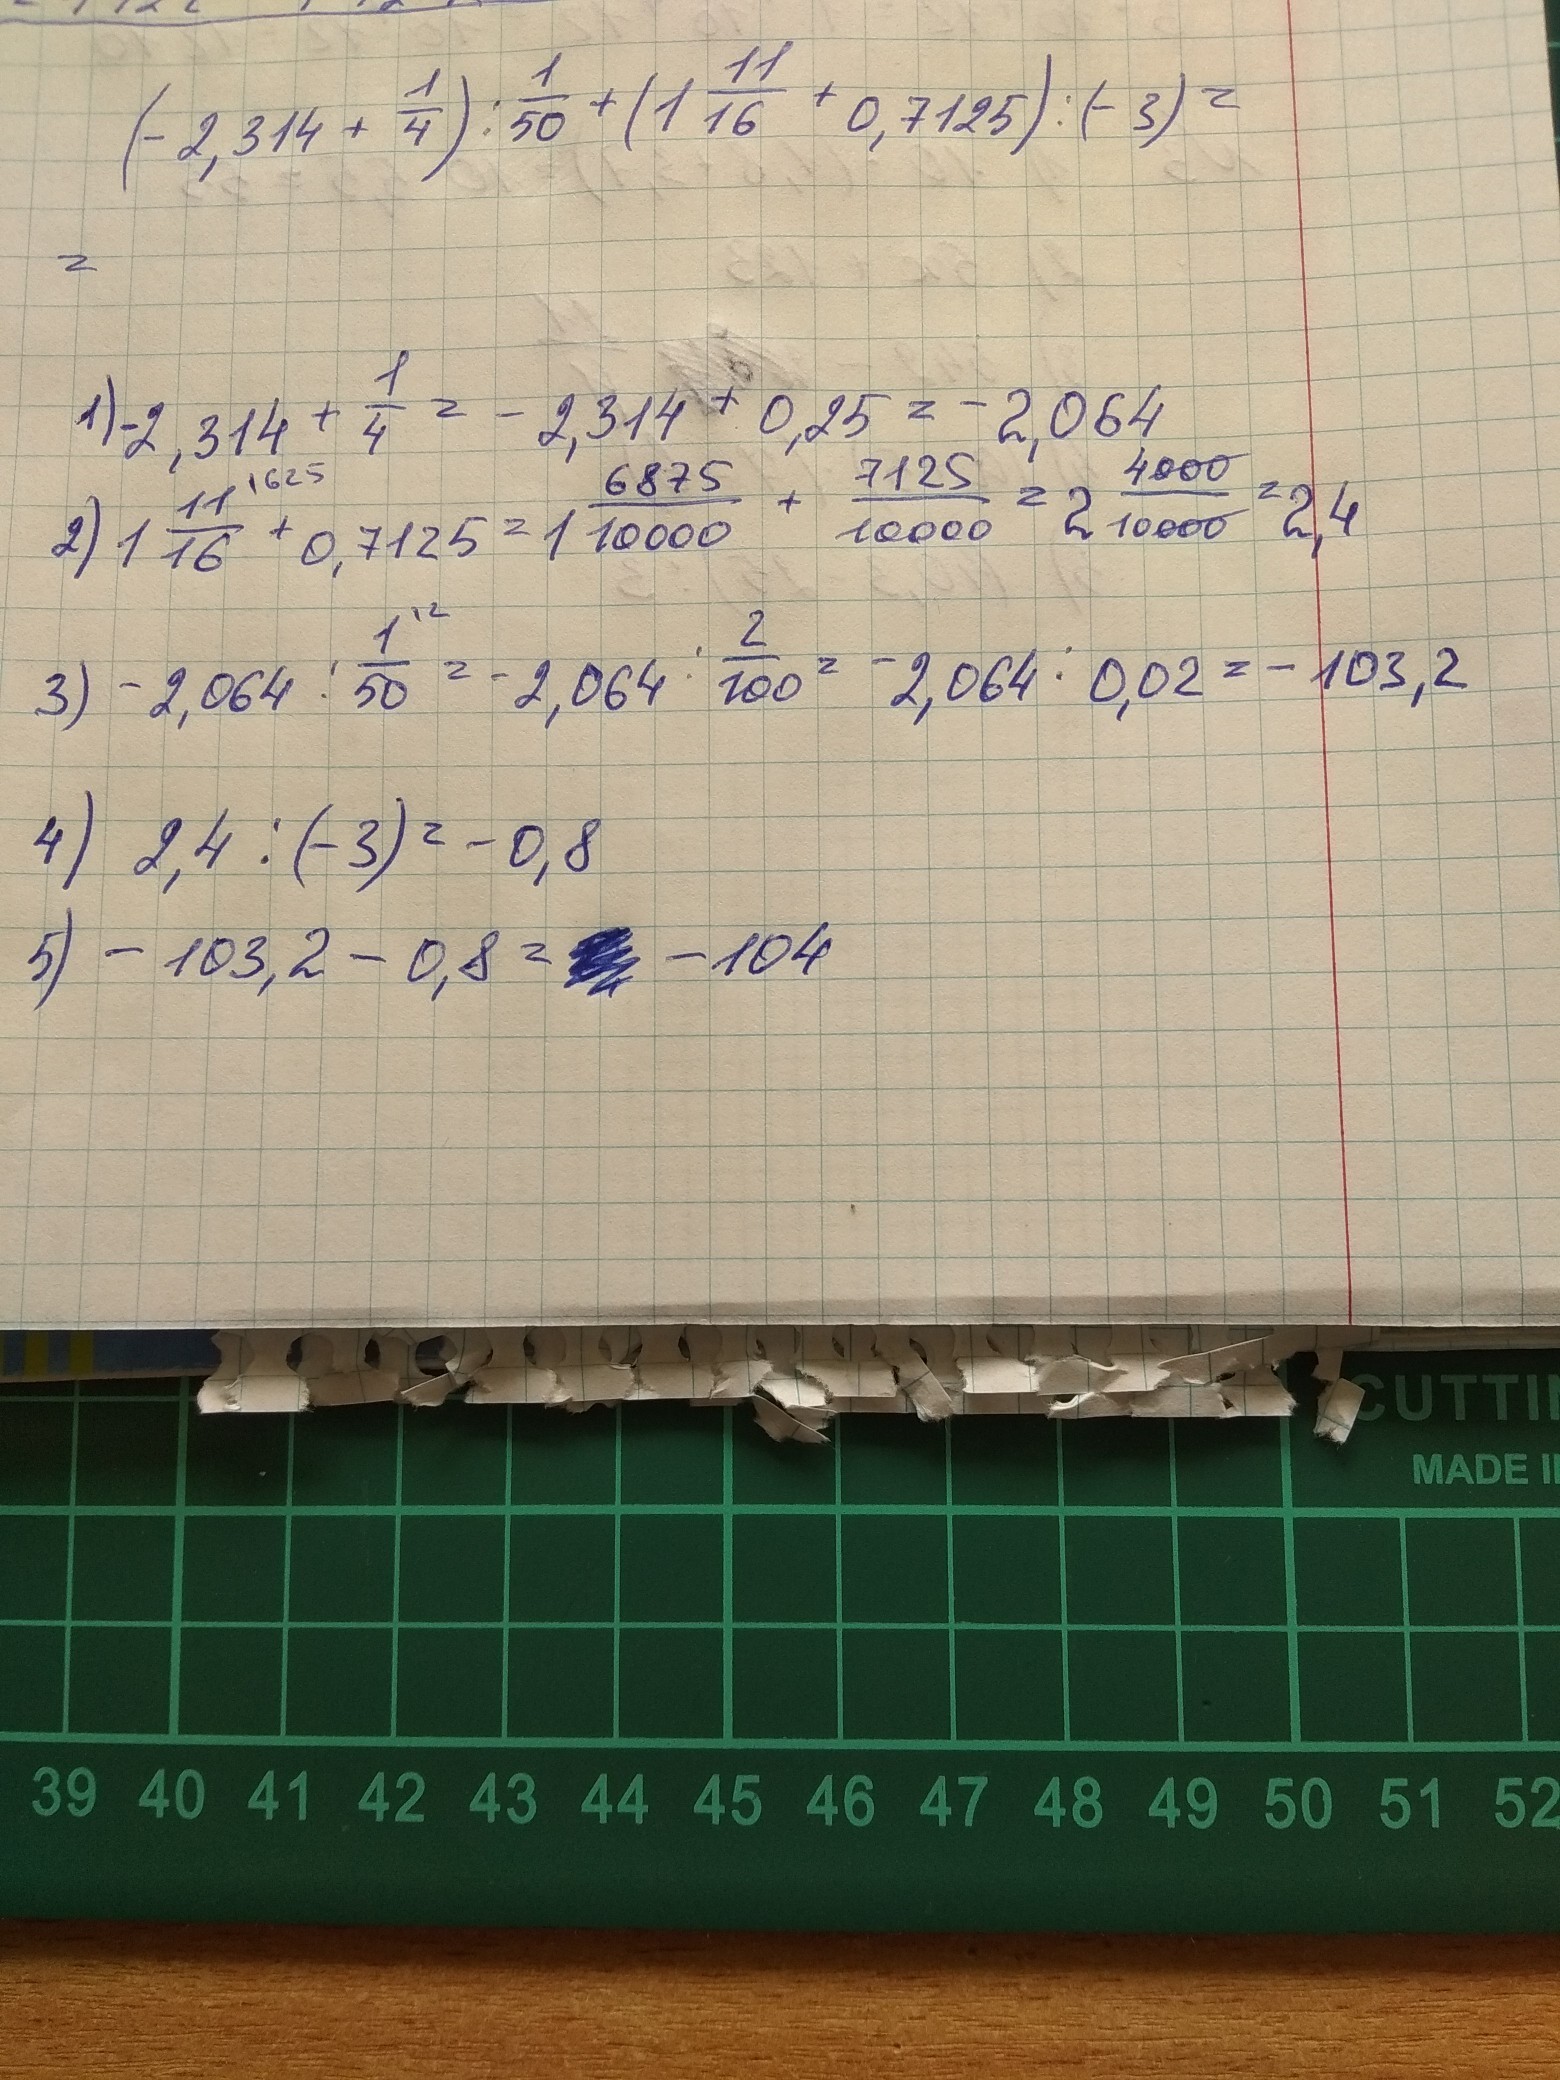 (-2,314 + 1/4) : 1/50 + (1 11/16 + 0,7125) : (-3) =
=
1) -2,314 + 1/4 = -2,314 + 0,25 = -2,064
2) 1 11/16 ^\625 + 0,7125 = 1 6875/10000 + 7125/10000 = 2 4000/10000 = 2,4
3) -2,064 : 1/50 ^\2 = -2,064 : 2/100 = -2,064 : 0,02 = -103,2
4) 2,4 : (-3) = -0,8
5) -103,2 - 0,8 = -104
CUTTIN
MADE IN
39 40 41 42 43 44 45 46 47 48 49 50 51 52